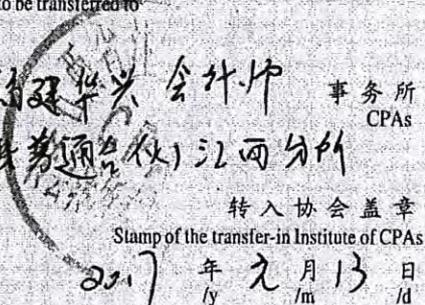 to be transferred to
建华兴会计师 事务所
CPAs
普通合伙)江西分所
转入协会盖章
Stamp of the transfer-in Institute of CPAs
2017 年 元 月 13 日
/y /m /d